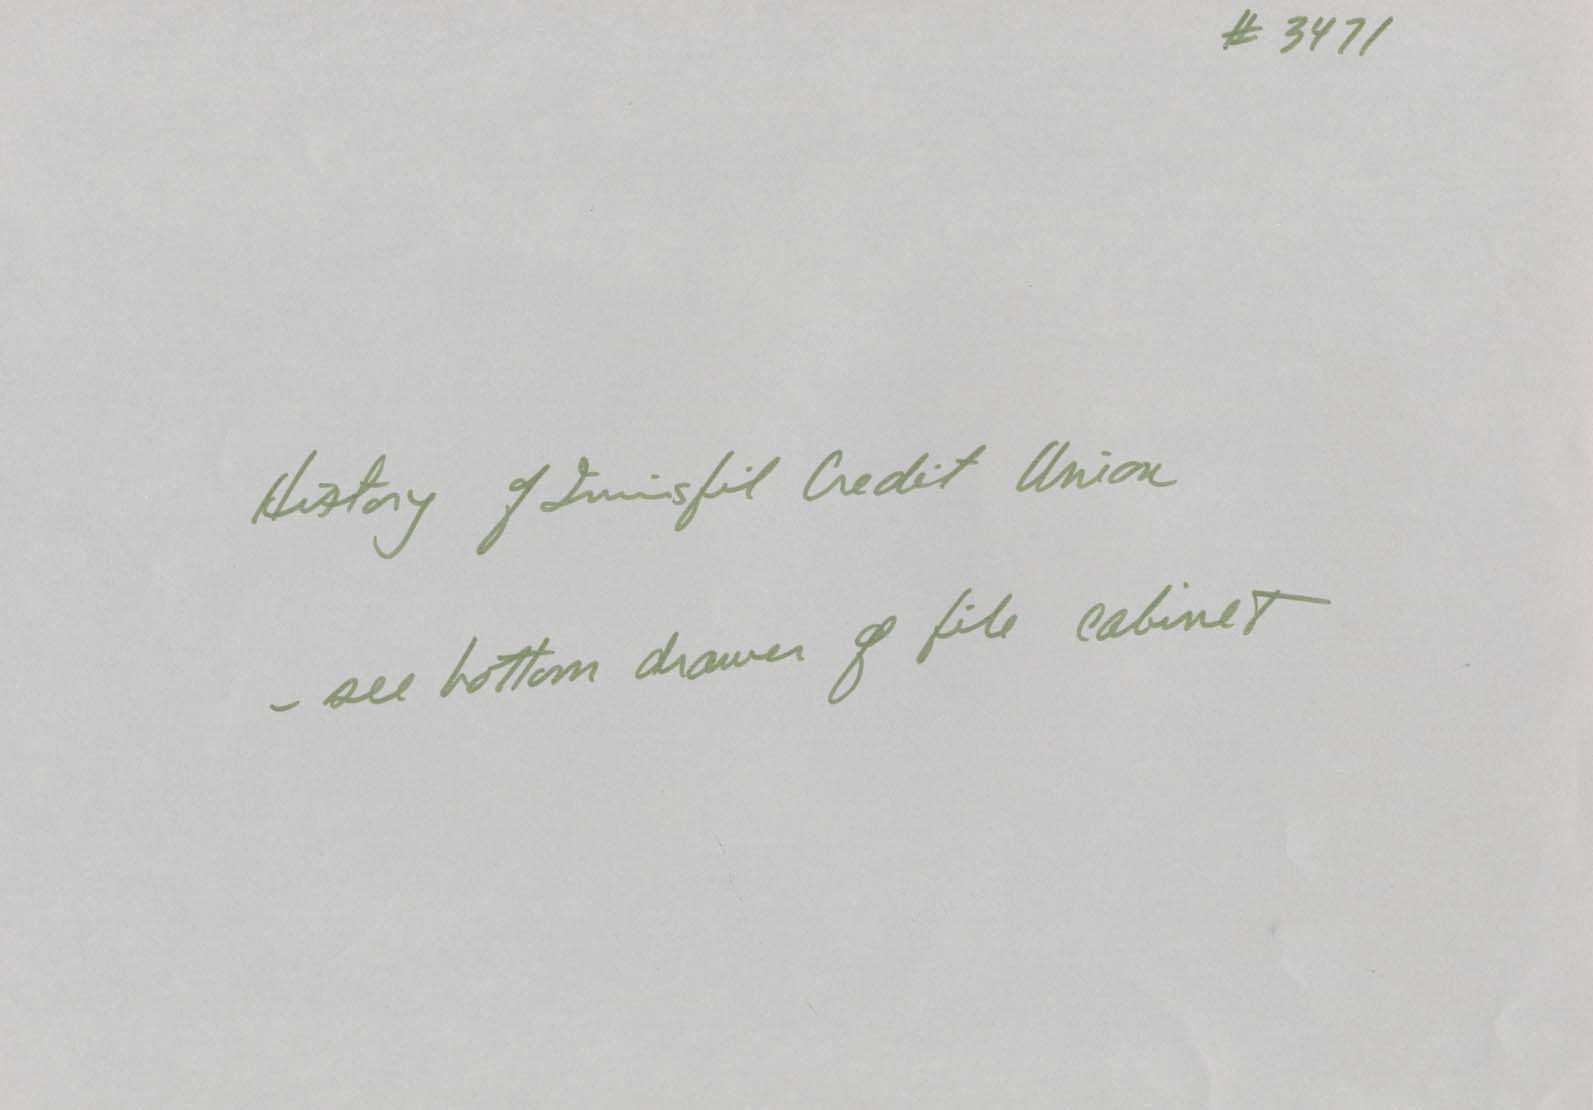 # 3471
History of Innisfil Credit Union
- see bottom drawer of file cabinet